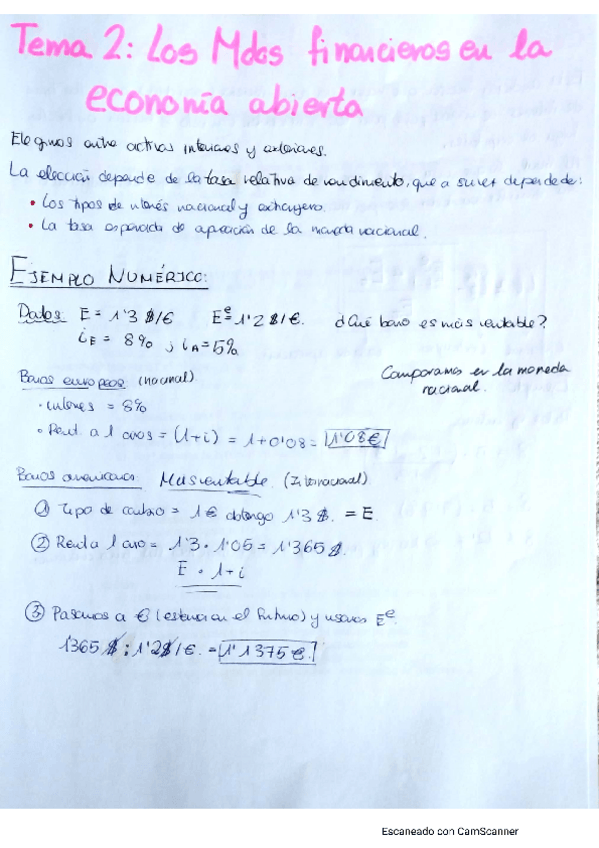 Tema 2: Los Mdos financieros en la
economía abierta
Elegimos entre activos interiores y exteriores.
La elección depende de la tasa relativa de rendimiento, que a su vez depende de:
• Los tipos de interés nacional y extranjero.
• La tasa esperada de apreciación de la moneda nacional.
EJEMPLO NUMÉRICO:
Datos: E = 1'3 $/€ Eᵉ = 1'2 $/€. ¿Qué bono es más rentable?
iE = 8% ; iA = 5%
Comparamos en la moneda
nacional.
Bonos europeos (nacional)
• intereses = 8%
• Rent. a 1 años = (1+i) = 1+0'08 = 1'08€
Bonos americanos. Mas rentable (Internacional).
① Tipo de cambio = 1€ obtengo 1'3 $. = E.
② Renta 1 año = 1'3 • 1'05 = 1'365 $.
E • 1+i
③ Pasamos a € (estamos en el futuro) y usamos Eᵉ.
1365 $ : 1'2$/€. = 1'1375€.
Escaneado con CamScanner